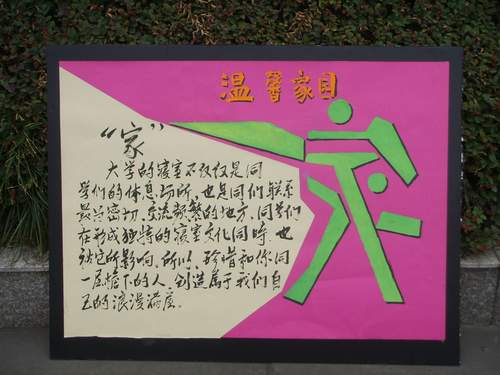 温馨家园
“家”
大学的寝室不仅仅是同
学们的休息场所,也是同们联系
最为密切、交流频繁的地方,同学们
在形成独特的寝室文化同时,也
被它所影响,所以,珍惜和你同
一屋檐下的人,创造属于我们自
己的浪漫满屋.